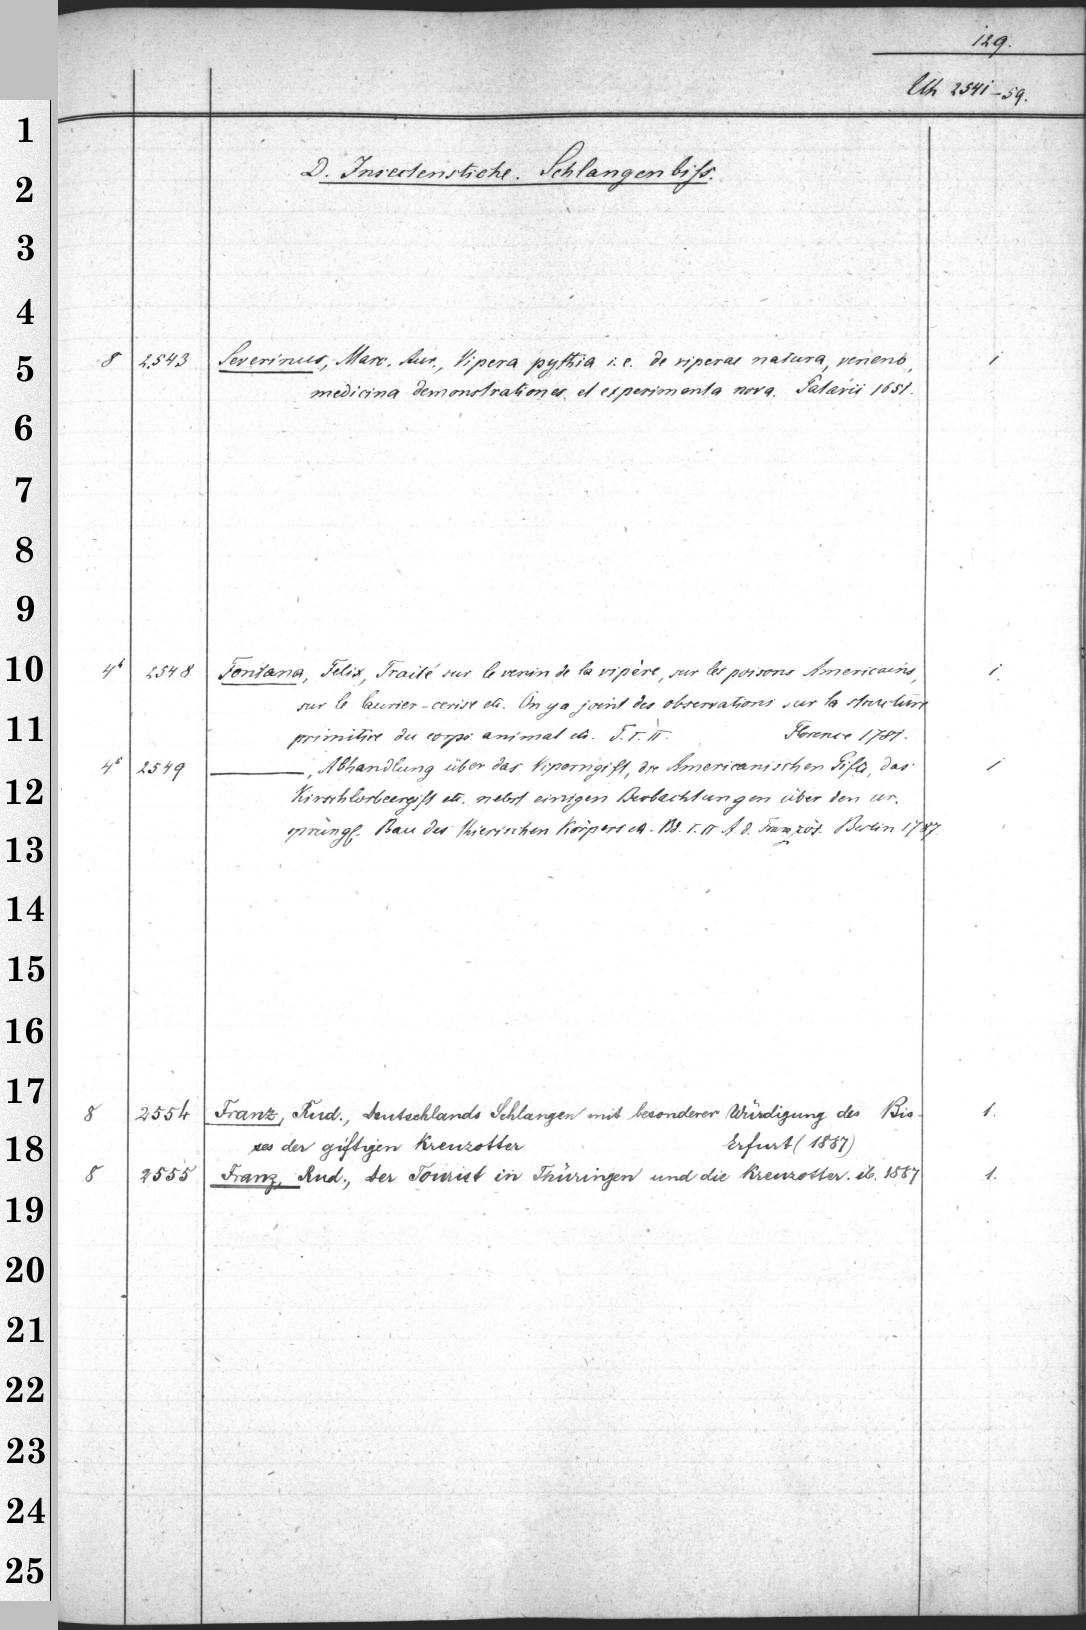 129.
Uh 2541-59.
D. Insectenstiche. Schlangenbiss.
8 2543 Severinus, Marc. Aur., Vipera pythia i.e. de viperae natura, veneno, 1
medicina demonstrationes et experimenta nova. Patavii 1651.
4° 2548 Fontana, Felix, Traité sur le venin de la vipère, sur les poisons Americains, 1.
sur le laurier-cerise etc. On y a joint des observations sur la structure
primitive du corps animal etc. T. I. II. Florence 1781.
4° 2549 ———, Abhandlung über das Viperngift, die Americanischen Gifte, das 1
Kirschlorbeergift etc. nebst einigen Beobachtungen über den ur-
sprüngl. Bau des thierischen Körpers etc. Bd. I. II A. d. Französ. Berlin 1787
8 2554 Franz, Rud., Deutschlands Schlangen mit besonderer Würdigung des Bis- 1.
ses der giftigen Kreuzotter Erfurt (1887)
8 2555 Franz, Rud., Der Tourist in Thüringen und die Kreuzotter. ib. 1887 1.
1
2
3
4
5
6
7
8
9
10
11
12
13
14
15
16
17
18
19
20
21
22
23
24
25